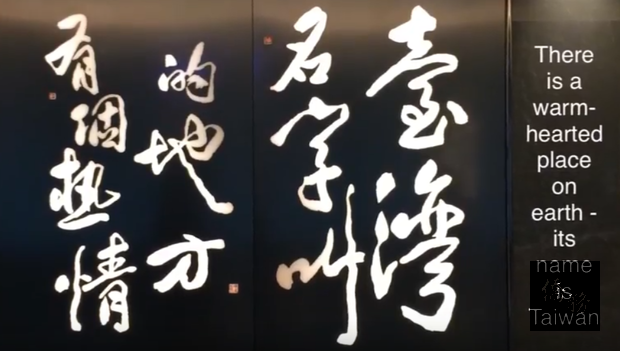 有個熱情
的地方
名字叫
臺灣
There
is a
warm-
hearted
place
on
earth -
its
name
is
Taiwan